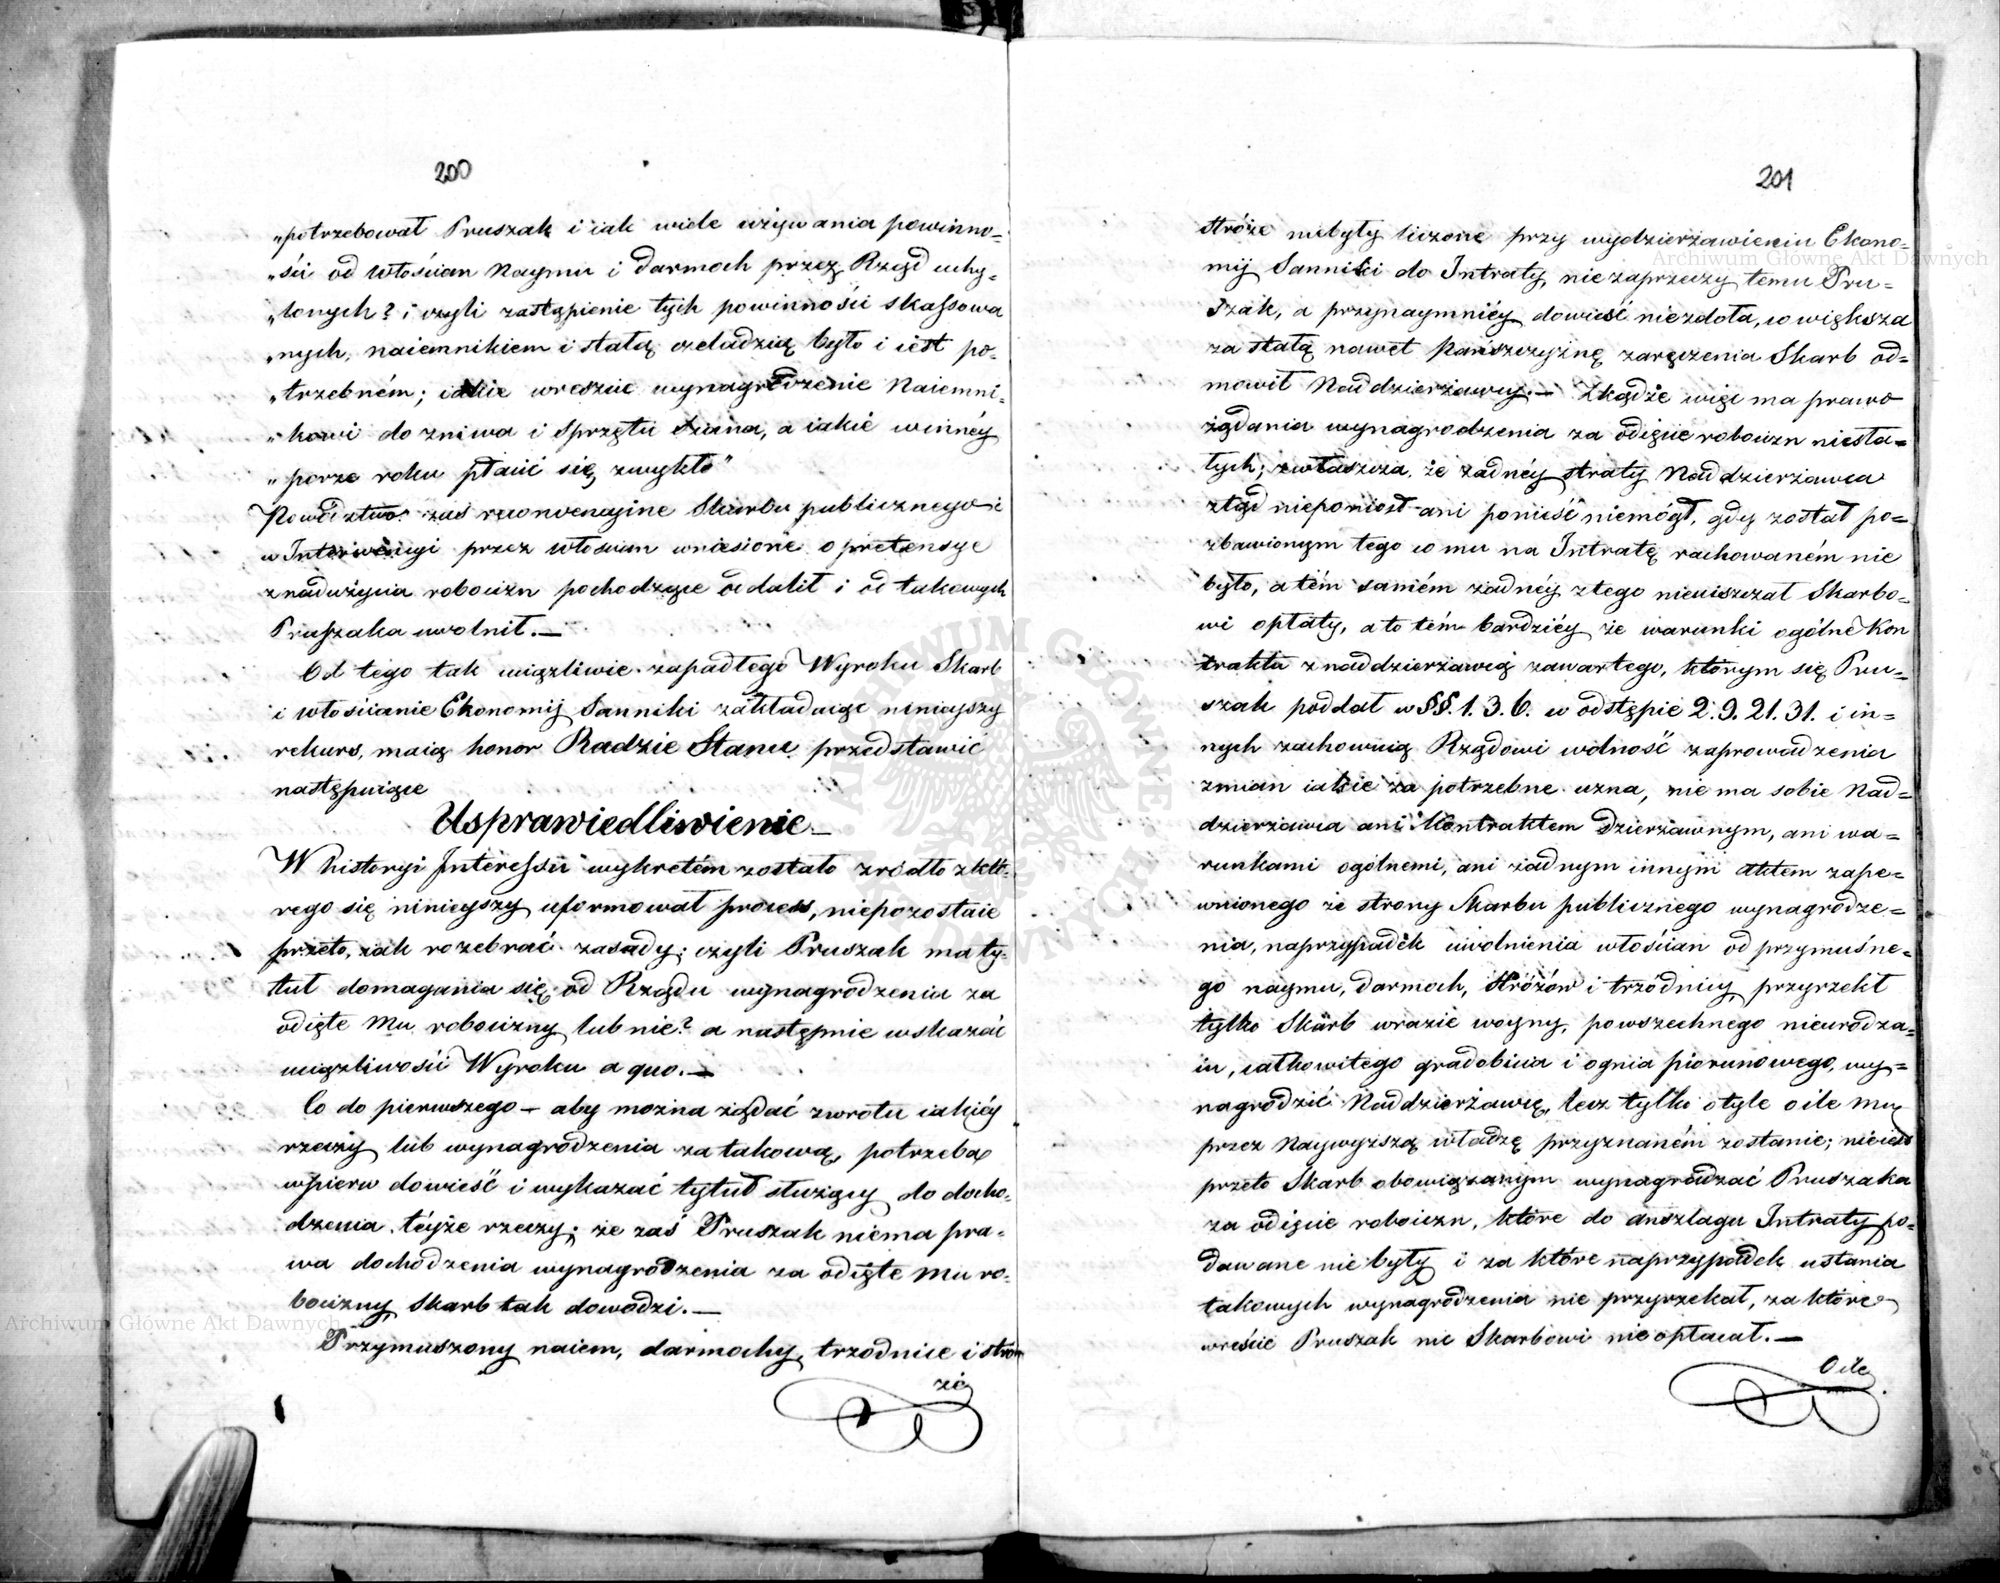 200
„potrzebował Pruszak i iak wiele używania powinno=
„ści od Włościan Naymu i Darmoch przez Rząd uchy„
„lonych? i czyli zastąpienie tych powinności skassowa
„nych, naiemnikiem i stałą czeladzią było i iest po„
„trzebném; iakie wreszcie wynagrodzenie Naiemni„
„kowi do żniwa i Sprzętu Siana, a iakie w innéy
„porze roku płacić się zwykło"
Powództwo zaś rekonwencyine Skarbu publicznego i
w Interwencyi przez włościan wniesione o pretensye
z nadużycia robocizn pochodzące oddalił i od takowych
Pruszaka uwolnił.—
Od tego tak uciążliwie zapadłego Wyroku Skarb
i włościanie Ekonomij Sanniki zakładaiąc ninieyszy
rekurs, maią honor Radzie Stanu przedstawić
następuiące
Usprawiedliwienie—
W historyi Interessu wykretém zostało zródło z któ„
rego się ninieyszy uformował process, niepozostaie
przeto, iak rozebrać zasady; czyli Pruszak ma ty„
tuł domagania się od Rządu wynagrodzenia za
odięte Mu robocizny lub nie? a następnie wskazać
uciążliwości Wyroku a quo.—
Co do pierwszego — aby można żądać zwrotu iakiéy
rzeczy lub wynagrodzenia za takową, potrzeba
wpierw dowieść i wykazać tytuł służący do docho„
dzenia téyże rzeczy; że zaś Pruszak niema pra„
wa dochodzenia wynagrodzenia za odięte Mu ro„
bocizny Skarb tak dowodzi.—
Przymuszony naiem, darmochy, trzodnice i stró=
że
201
stróże niebyły liczone przy wydzierżawieniu Ekono=
mij Sanniki do Intraty, niezaprzeczy temu Pru=
szak, a przynaymniéy dowieść niezdoła, co większa
za stałą nawet Pańszczyznę zaręczenia Skarb od=
mówił Naddzierżawcy.— Zkądże więc ma prawo
żądania wynagrodzenia za odięcie robocizn niesta=
łych; zwłaszcza, że żadnéy straty Naddzierżawca
ztąd nieponiosł ani ponieść niemógł, gdy został po=
zbawionym tego co mu na Intratę rachowaném nie
było, a tém samém żadnéy z tego nieuiszczał Skarbo„
wi opłaty, a to tém bardziéy że warunki ogólne Kon
traktu z naddzierżawcą zawartego, którym się Pru„
szak poddał w §§. 1. 3. 6. w odstępie 2. 9. 21. 31. i in=
nych zachowuią Rządowi wolność zaprowadzenia
zmian iakie za potrzebne uzna, nie ma sobie Nad=
dzierżawca ani Kontraktem Dzierżawnym, ani wa=
runkami ogólnemi, ani żadnym innym aktem zape=
wnionego ze strony Skarbu publicznego wynagrodze=
nia, naprzypadek uwolnienia włościan od przymuśne=
go naymu, Darmoch, Stróżów i trzódnicy, przyrzekł
tylko Skarb wrazie woyny, powszechnego nieurodza=
iu, całkowitego gradobicia i ognia piorunowego, wy=
nagrodzić Naddzierżawcę, lecz tylko o tyle o ile Mu
przez Naywyższą władzę przyznaném zostanie; nieiest
przeto Skarb obowiązanym wynagradzać Pruszaka
za odięcie robocizn, które do anszlagu Intraty po„
dawane nie były i za które naprzypadek ustania
takowych wynagrodzenia nie przyrzekał, za które
wreście Pruszak nic Skarbowi nie opłacał.—
O ile
Archiwum Główne Akt Dawnych
Archiwum Główne Akt Dawnych
ARCHIWUM GŁÓWNE AKT DAWNYCH